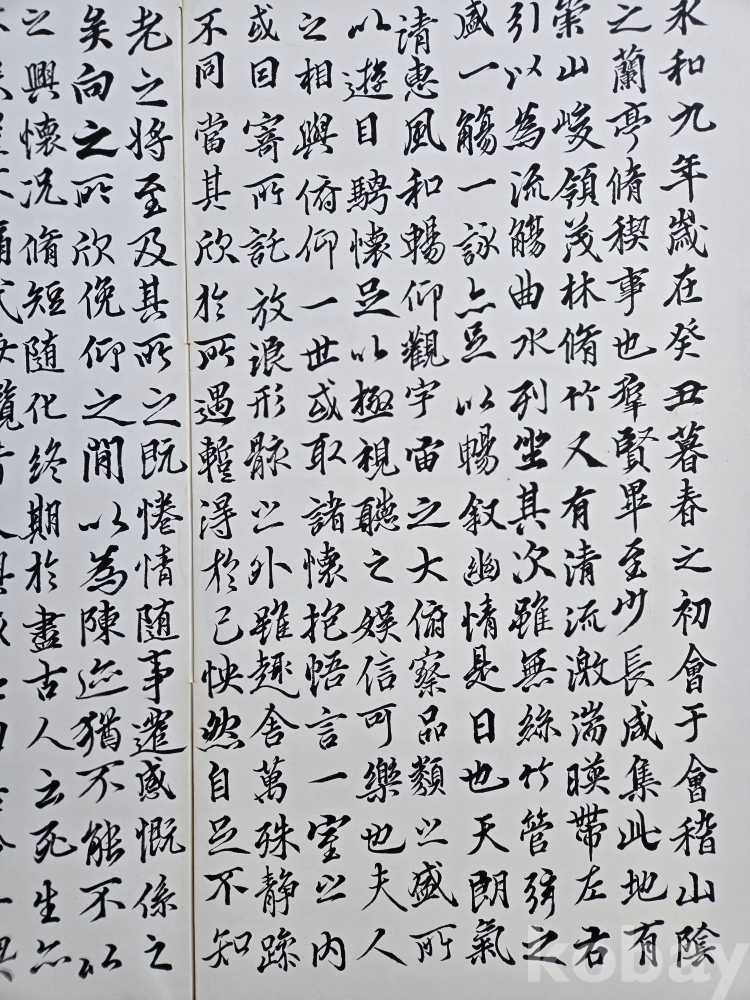 永和九年歲在癸丑暮春之初會于會稽山陰
之蘭亭脩稧事也羣賢畢至少長咸集此地有
崇山峻領茂林脩竹又有清流激湍暎帶左右
引以為流觴曲水列坐其次雖無絲竹管弦之
盛一觴一詠亦足以暢叙幽情是日也天朗氣
清惠風和暢仰觀宇宙之大俯察品類之盛所
以遊目騁懷足以極視聽之娛信可樂也夫人
之相與俯仰一世或取諸懷抱悟言一室之內
或因寄所託放浪形骸之外雖趣舍萬殊靜躁
不同當其欣於所遇蹔得於己怏然自足不知
老之將至及其所之既惓情随事遷感慨係之
矣向之所欣俛仰之閒以為陳迹猶不能不以
之興懷況脩短随化終期於盡古人云死生亦
kobay